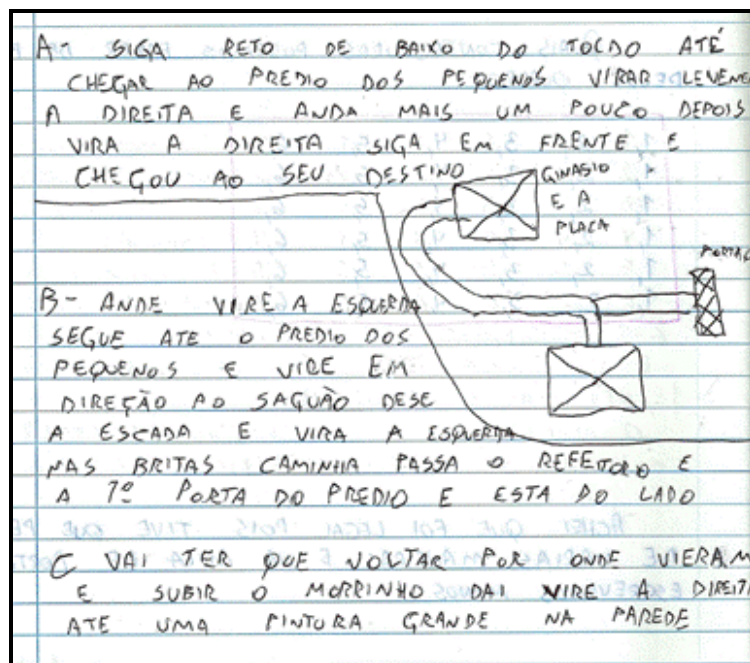 A- SIGA RETO DE BAIXO DO TOLDO ATÉ
CHEGAR AO PREDIO DOS PEQUENOS VIRAR LEVEME
A DIREITA E ANDA MAIS UM POUCO DEPOIS
VIRA A DIREITA SIGA EM FRENTE E
CHEGOU AO SEU DESTINO
GINASIO
E A
PLACA
PORTAO
B- ANDE VIRE A ESQUERDA
SEGUE ATE O PREDIO DOS
PEQUENOS E VIRE EM
DIREÇÃO AO SAGUÃO DESE
A ESCADA E VIRA A ESQUERDA
NAS BRITAS CAMINHA PASSA O REFEITORIO E
A 7º PORTA DO PREDIO E ESTA DO LADO
C VAI TER QUE VOLTAR POR ONDE VIERAM
E SUBIR O MORRINHO DAI VIRE A DIREITA
ATE UMA PINTURA GRANDE NA PAREDE